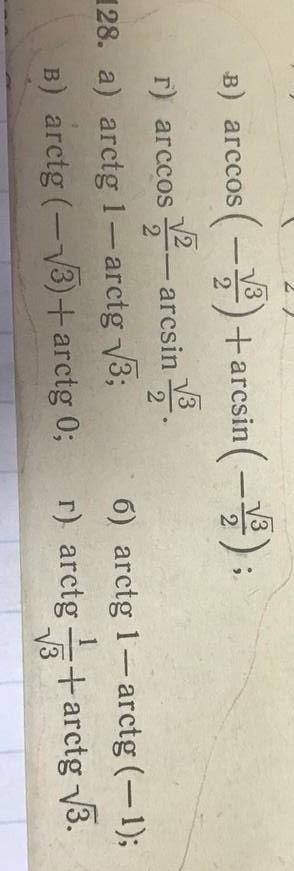 в) arccos(−√3/2)+arcsin(−√3/2);
г) arccos √2/2−arcsin √3/2.
128. а) arctg 1−arctg √3; б) arctg 1−arctg (−1);
в) arctg (−√3)+arctg 0; г). arctg 1/√3+arctg √3.